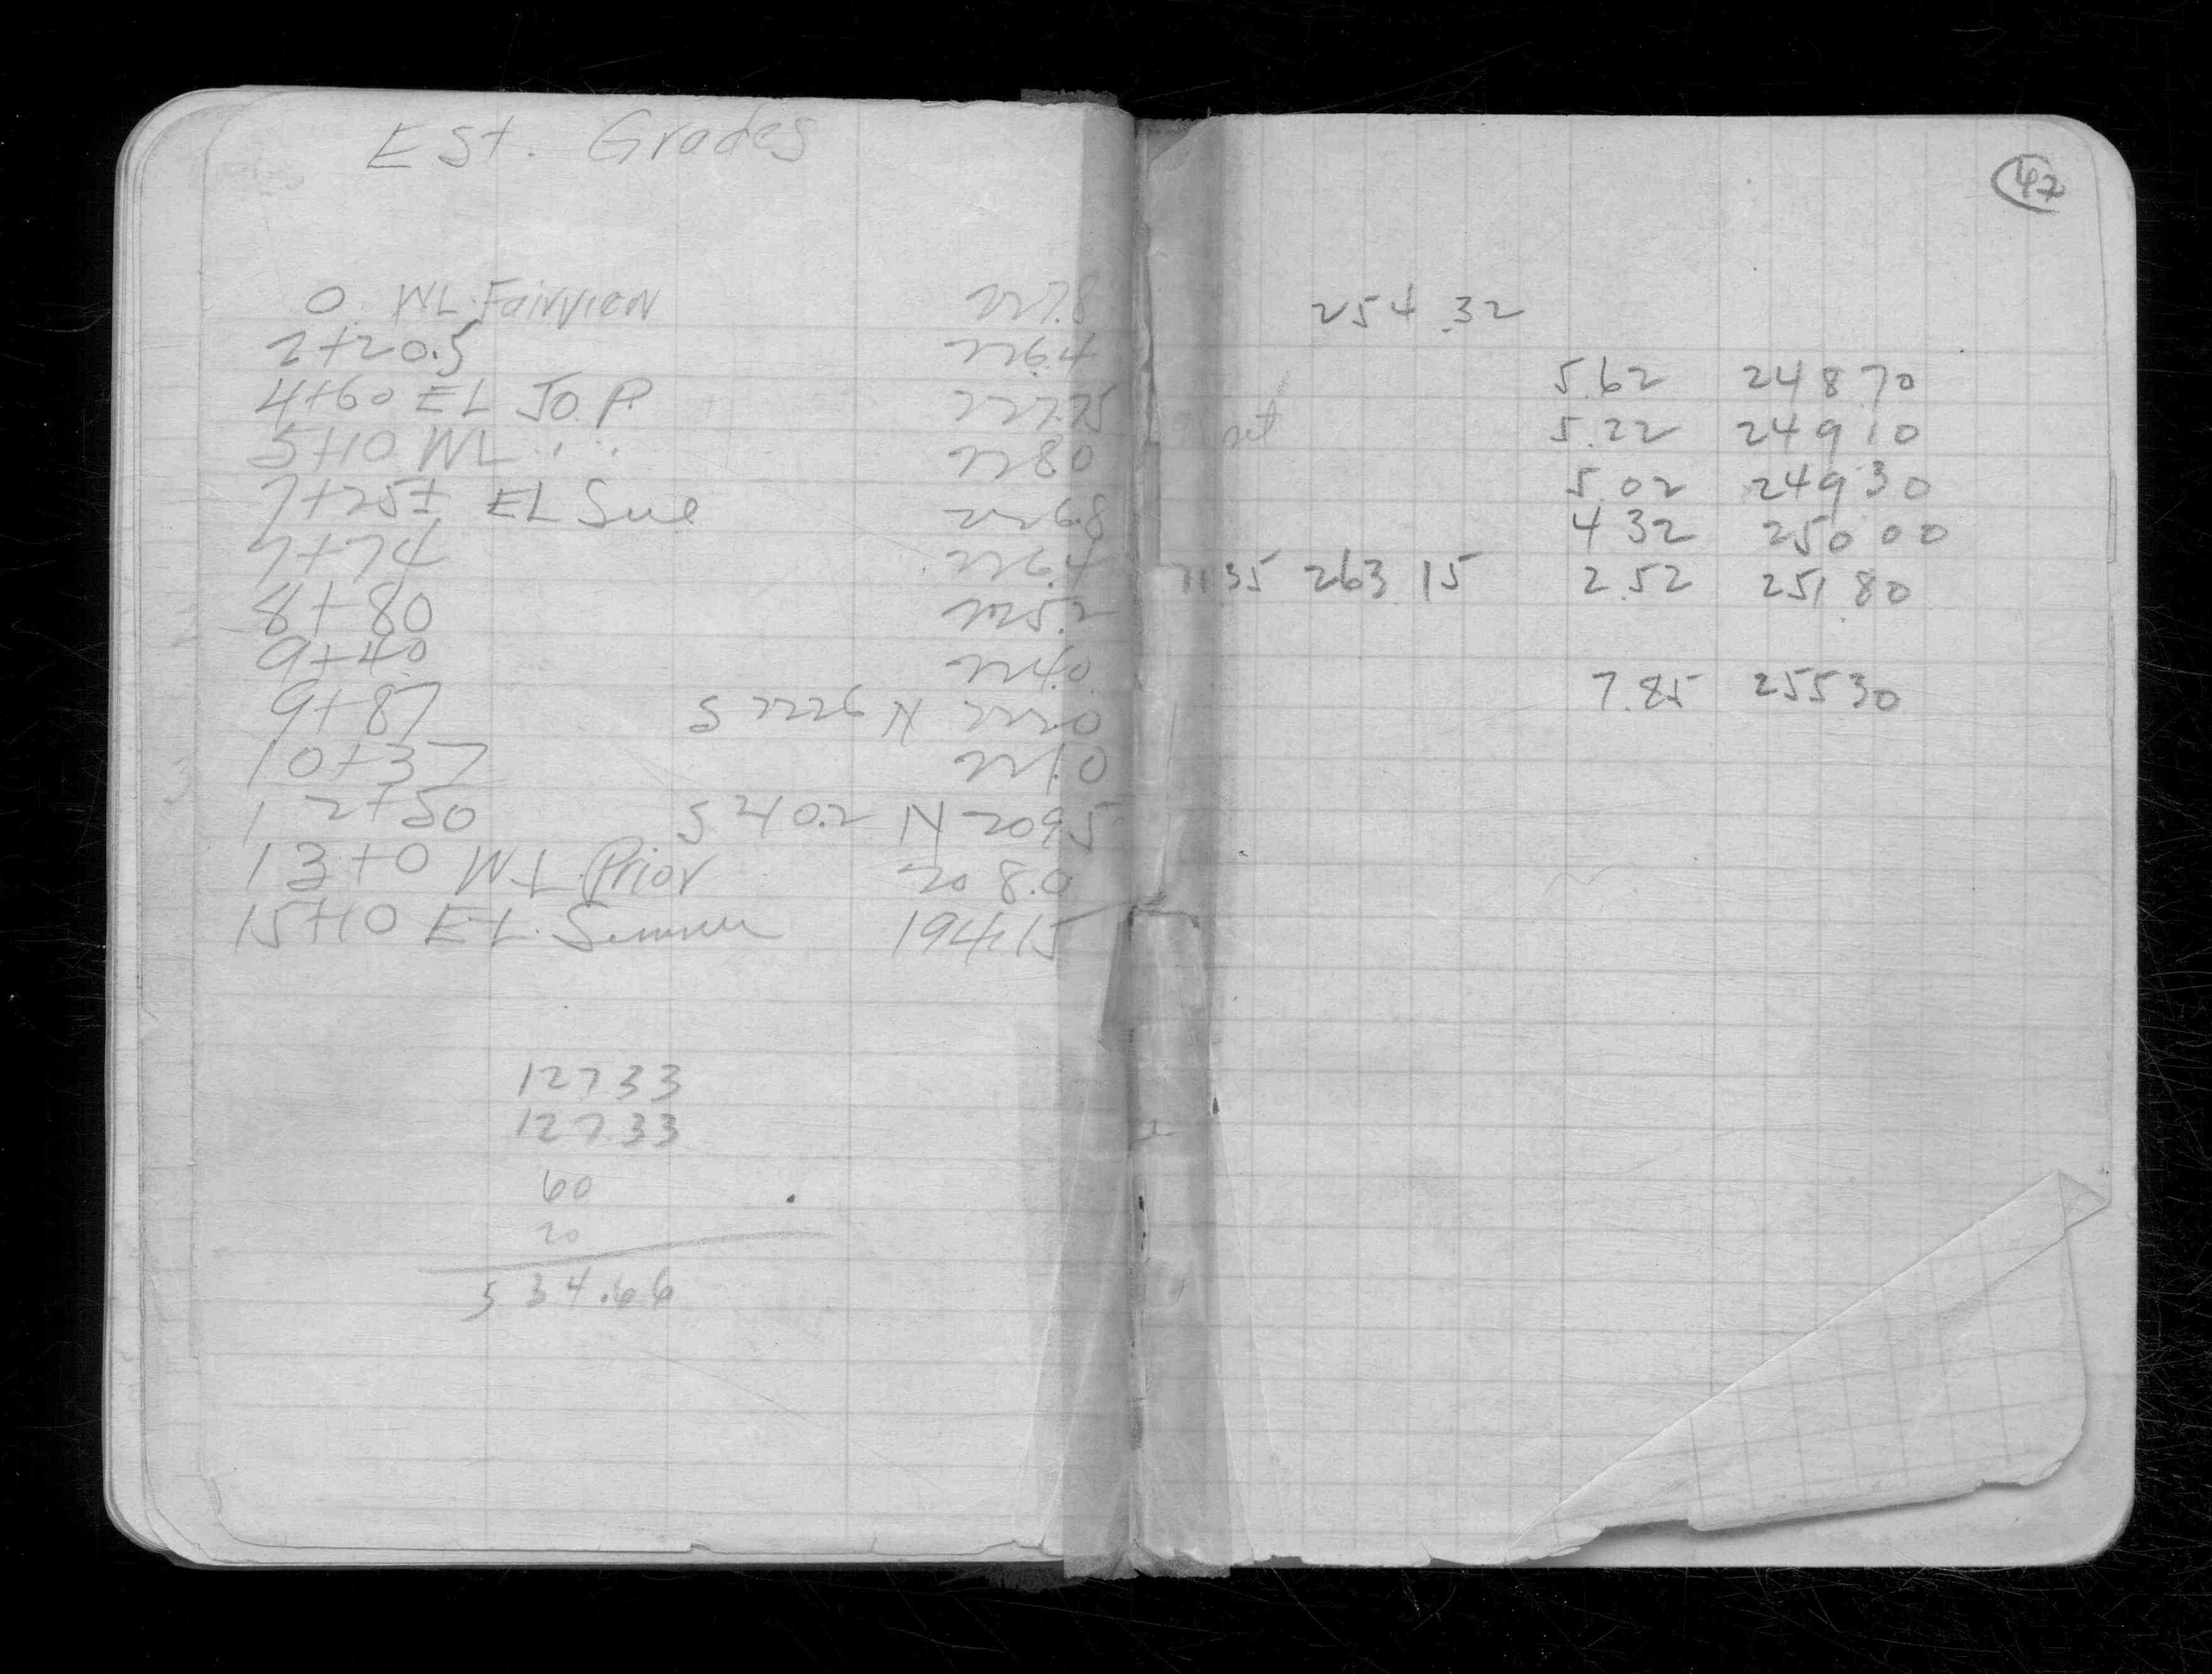 Est. Grades
0 WL. Fairview 227.8
2+20.5 226.4
4+60 EL Jo. P. 227.75
5+10 WL " " 228.0
7+25± EL Sue 226.8
7+74 226.4
8+80 225.2
9+40 224.0
9+87 S 222.6 N 222.0
10+37 221.0
12+50 S 210.2 N 209.5
13+0 W.L. Prior 208.0
15+10 E.L. 194.15
127 33
127 33
60
20
334.66
47
254.32
5.62 248 70
5.22 249 10
5.02 249 30
4 32 250 00
11.35 263 15 2.52 251 80
7.85 255 30